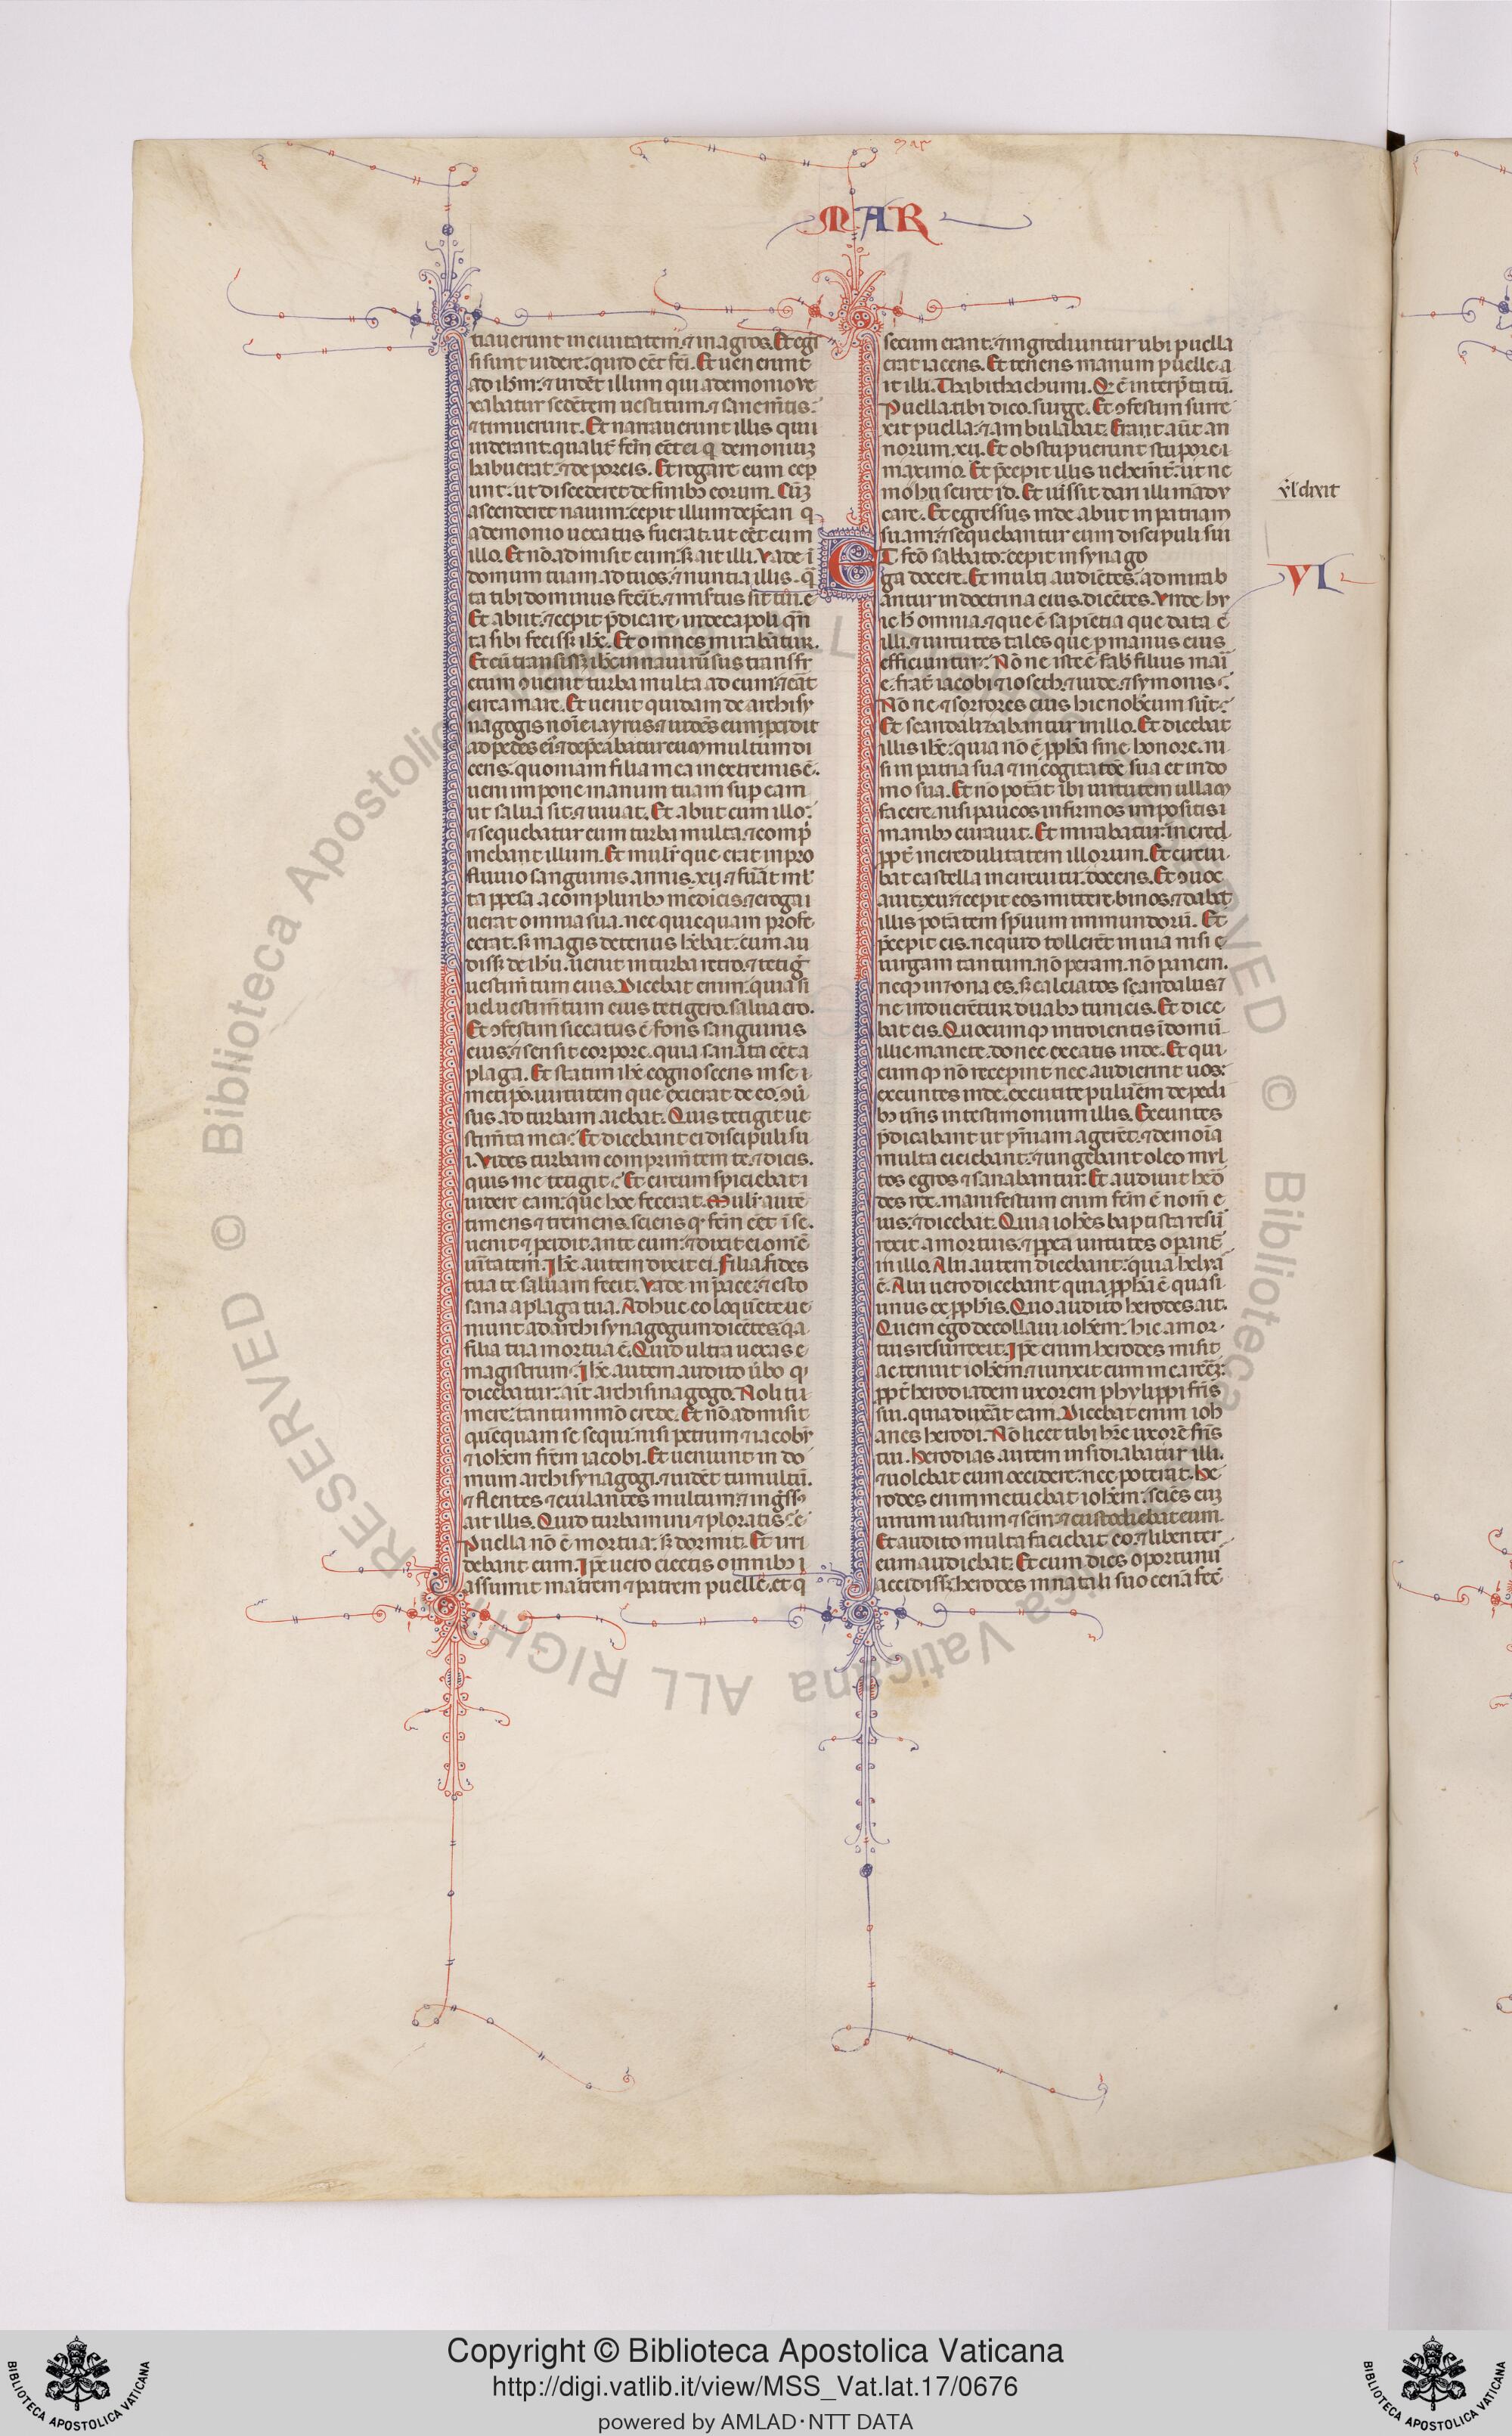 MAR
tiauerunt in ciuitatem. ⁊ in agros. Et egͥ
si sunt uidere: quid eēt fc̄i. Et uenerunt
ad ihm̄: ⁊ uidēt illum qui a demonio ve
xabatur sedētem uestitum. ⁊ sane mētis:
⁊ timuerunt. Et narrauerunt illis qui
uiderant. qualit̄ fc̄m eēt ei q̄ demoniuꝫ
habuerat: ⁊ de porcis. Et rogare eum cep̄
unt: ut discederet de finibꝰ eorum. Cūꝫ
ascenderet nauim: cepit illum dep̄cari q
a demonio uexatus fuerat: ut eēt cum
illo. Et nō admisit eum: sꝫ ait illi. Vade ī
domum tuam ad tuos: ⁊ nuntia illis. q̄
ta tibi dominus fecit̄: ⁊ mis̄tus sit tui. e
Et abiit: ⁊ cepit p̄dicare. in decapoli. qn̄
ta sibi fecissꝫ ihc̄. Et omnes mirabātur.
Et cū transissꝫ ihc̄ in naui rūsus transfr
etum ꝯuenit turba multa ad eum: ⁊ erāt
circa mare. Et uenit quidam de archisy
nagogis noīe iayrus: ⁊ uidēs eum p̄cidit
ad pedes eiꝰ ⁊ dep̄cabatur euꝫ multum di
cens: quoniam filia mea in extremis ē.
ueni impone manum tuam sup̄ eam
ut salua sit: ⁊ uiuat. Et abiit cum illo:
⁊ sequebatur eum turba multa. ⁊ comp̄
mebant illum. Et muli᷑ que erat in pro
fluuio sanguinis annis. xij. ⁊ fūat ml̄
ta ꝑpessa a compluribꝰ medicis: ⁊ eroga
uerat omnia sua. nec quicquam profe
cerat. sꝫ magis deterius hēbat. cum au
dissꝫ de ihū. uenit in turba retro. ⁊ tetiḡ
uestim̄tum eius. Dicebat enim: quia si
uel uestim̄tum eius tetigero. salua ero.
Et ꝯfestim siccatus ē fons sanguinis
eius: ⁊ sensit corpore. quia sanata eēt a
plaga. Et statim ihc̄ cognoscens in se ī
metipō. uirtutem que exierat de eo. ꝯū
sus ad turbam aiebat. Quis tetigit ue
stim̄ta mea: Et dicebant ei discipuli su
i. Vides turbam comprim̄tem te. ⁊ dicis.
quis me tetigit: Et circumspiciebat
uidere eam. que hoc fecerat. Muli᷑ autē
timens ⁊ tremens. sciens qꝫ fc̄m eēt ī se.
uenit ⁊ p̄cidit ante eum: ⁊ dixit ei omnē
uītatem. Ihc̄ autem dixit ei. Filia. fides
tua te saluam fecit. Vade in pace: ⁊ esto
sana a plaga tua. Adhuc eo loquēte ue
niunt ad archisynagogum dicētes: qa
filia tua mortua ē. Quid ultra uexas e
magistrum: Ihc̄ autem audito ūbo qꝫ
dicebatur: ait archisinagogo. Noli ti
mere: tantummō crede. Et nō admisit
quēquam se sequi: nisi petrum ⁊ iacobꝫ
⁊ iohēm frēm iacobi. Et ueniunt in do
mum archisynagogi: ⁊ uidēt tumultū.
⁊ flentes ⁊ eiulantes multum: ⁊ ingrssꝰ
ait illis. Quid turbamini ⁊ ploratis: ē
Puella nō ē mortua: sꝫ dormit. Et irri
debant eum. Ipē uero eiectis omnibꝰ
assumit matrem ⁊ patrem puelle. et q
secum erant: ⁊ ingrediuntur ubi puella
erat iacens. Et tenens manum puelle. a
it illi. Thabitha chumi. Qꝫ ē interp̄tatū.
Puella. tibi dico. surge. Et ꝯfestim surre
xit puella: ⁊ ambulabat. Erant aūt an
norum. xij. Et obstupuerunt stupore
maximo. Et p̄cepit illis uehem̄t̄: ut ne
mo hū sciret id. Et iussit dari illi mādu
care. Et egressus inde abiit in patriam
suam: ⁊ sequebantur eum discipuli sui
v̄l dixit
VI
ET fcō sabbato: cepit in synago
ga docere. Et multi audiētes: admirab
antur in doctrina eius dicētes. Vnde hu
ic hꝫ omnia. ⁊ que ē sapiētia que data ē
illi. ⁊ uirtutes tales que ꝑ manus eius
efficiuntur: Nōne iste ē fab̄ filius mari
e. frat̄ iacobi ⁊ ioseth. ⁊ iude. ⁊ symonis:
Nōne ⁊ sorores eius hic nobꝫcum sūt:
Et scandalizabantur in illo. Et dicebat
illis ihc̄: quia nō ē ꝓph̄a sine honore. ni
si in patria sua ⁊ in cognatiōe sua et in do
mo sua. Et nō potāt ibi uirtutem ullaꝫ
facere. nisi paucos infirmos impositis
manibꝰ curauit. Et mirabatur. incred
ꝓpt̄ incredulitatem illorum. Et circui
bat castella in circuitu. docens. Et ꝯuoc
auit. xij. ⁊ cepit eos mittere binos. ⁊ dabat
illis potātem spūum immundorū. Et
p̄cepit eis. ne quid tollerēt in uia nisi
uirgam tantum. nō peram. nō panem.
neqꝫ in zona es. sꝫ calciatos scandaliis ⁊
ne induerētur duabꝰ tunicis. Et dice
bat eis. Quocumqꝫ introieritis ī domū.
illic manete. donec exeatis inde. Et qui
cumqꝫ nō recepint nec audierint uos:
exeuntes inde. excutite puluēem de pedi
bꝰ uīis in testimonium illis. Exeuntes
p̄dicabant ut pn̄iam agerēt: ⁊ demoīa
multa eiciebant: ⁊ ungebant oleo mul
tos egros ⁊ sanabantur. Et audiuit hero
des rex. manifestum enim fc̄m ē nom̄ e
ius: ⁊ dicebat. Quia iohēs baptista resūr
rexit a mortuis. ⁊ ꝓpea uirtutes oꝑant᷑
in illo. Alii autem dicebant: quia helyas
ē. Alii uero dicebant quia ꝓph̄a ē quasi
unus ex ꝓph̄is. Quo audito herodes ait.
Quem ego decollaui iohēm: hic a mor
tuis resurrexit. Ipē enim herodes misit
ac tenuit iohēm. ⁊ uinxit eum in carcēꝫ
ꝓpt̄ herodiadem uxorem phylippi frīs
sui. quia duxāt eam. Dicebat enim ioh
anes herodi. Nō licet tibi hr̄e uxorē frīs
tui. Herodias autem insidiabatur illi.
⁊ uolebat eum occidere: nec poterat. He
rodes enim metuebat iohēm: sciēs euꝫ
uirum iustum ⁊ sc̄m: ⁊ custodiebat eum.
Et audito multa faciebat. eo: ⁊ libenter
eum audiebat. Et cum dies oportunus
accidissꝫ: herodes in natali suo cenā fec̄
Copyright © Biblioteca Apostolica Vaticana
http://digi.vatlib.it/view/MSS_Vat.lat.17/0676
powered by AMLAD·NTT DATA
BIBLIOTECA APOSTOLICA VATICANA
BIBLIOTECA APOSTOLICA VATICANA